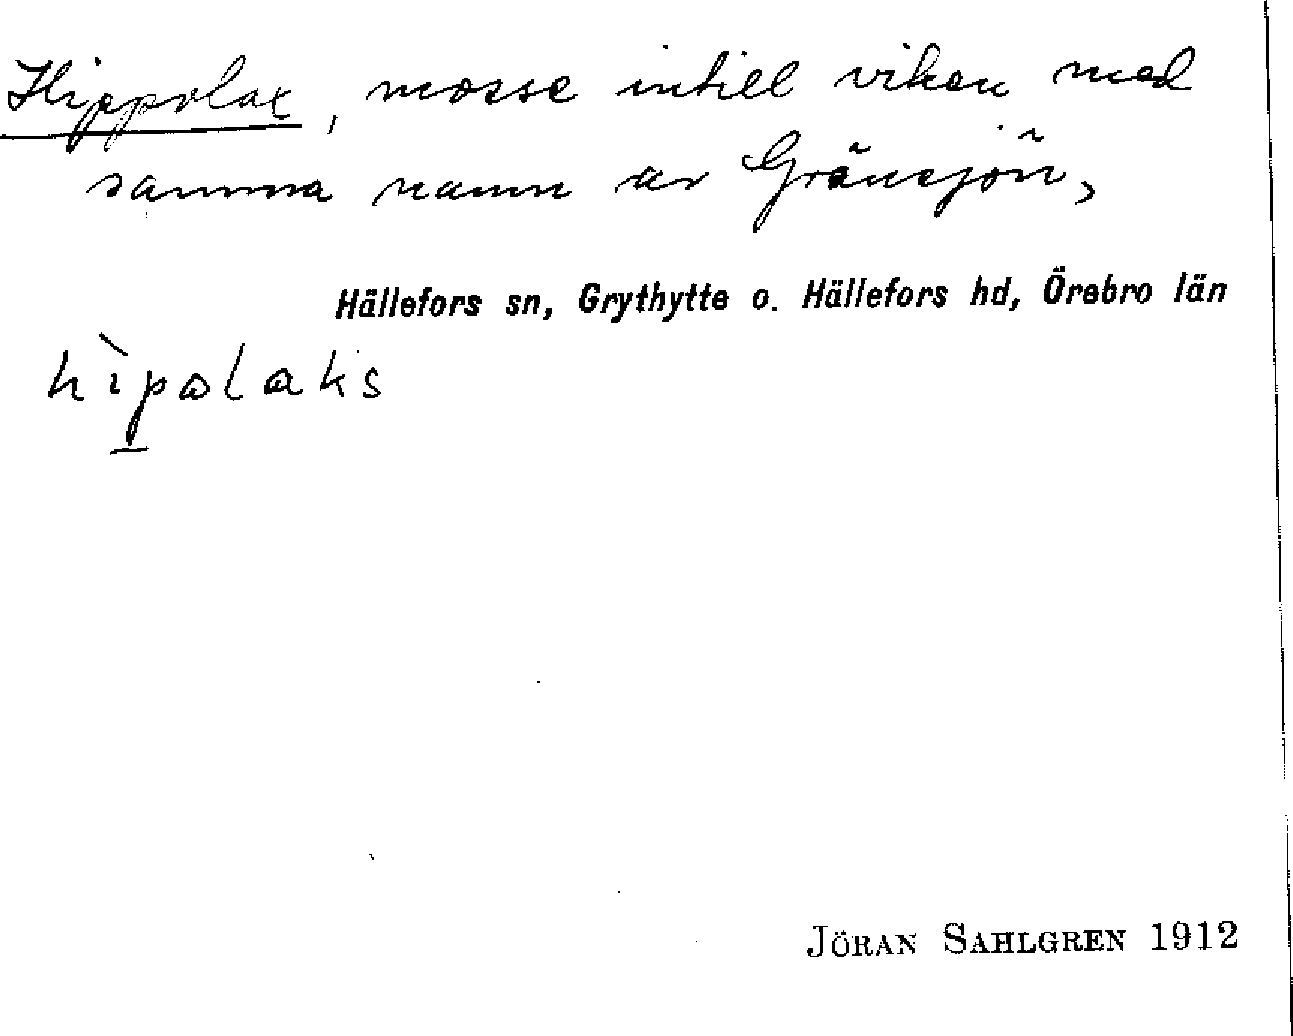 Hippolax, mosse intill viken med
samma namn av Gränsjön,
Hällefors sn, Grythytte o. Hällefors hd, Örebro län
hìpalaks
JÖRAN SAHLGREN 1912